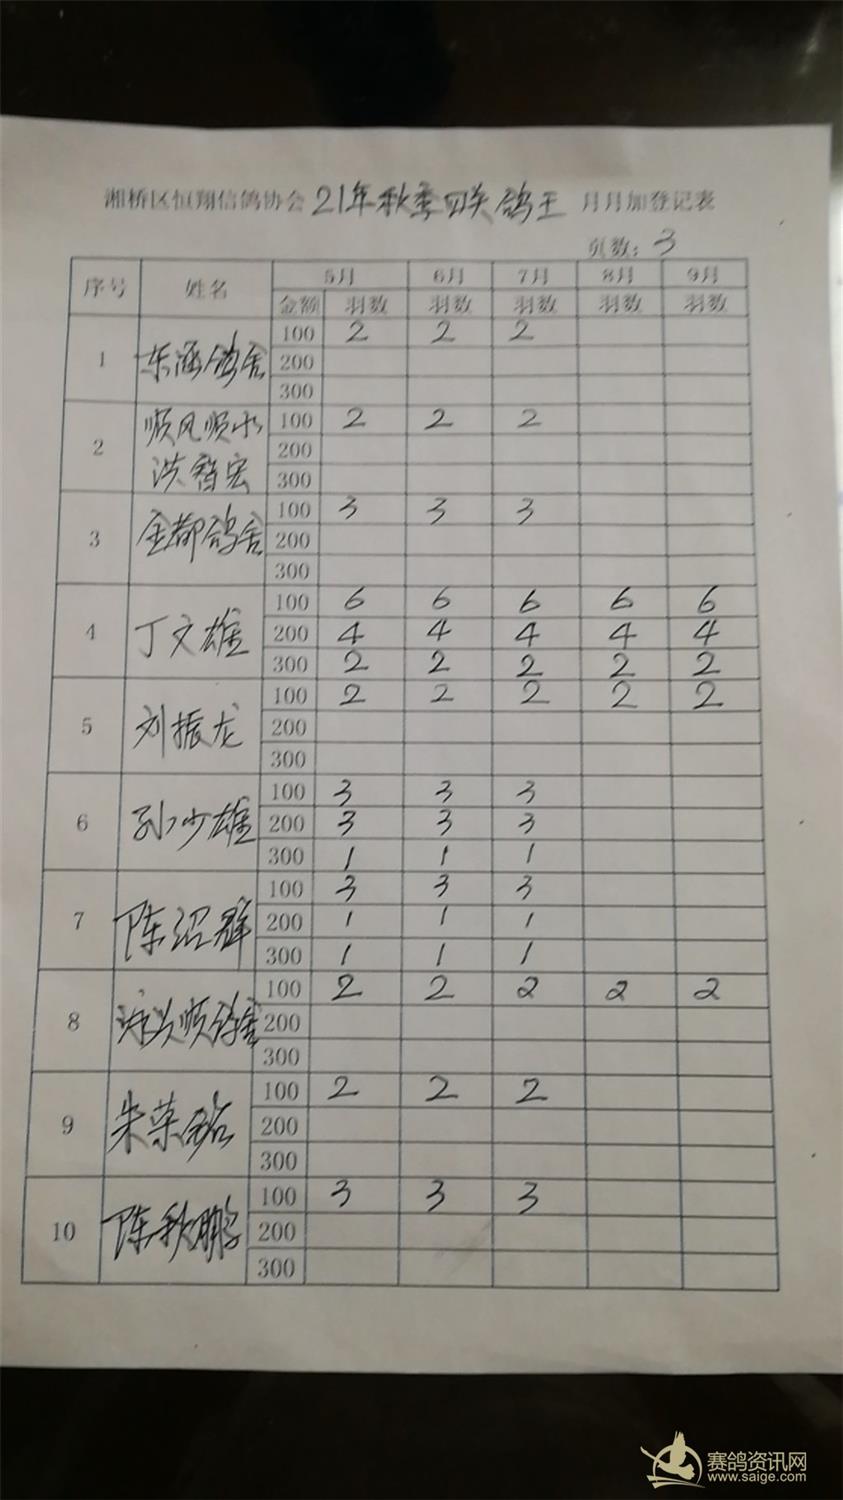 湘桥区恒翔信鸽协会 21年秋季四关鸽王 月月加登记表
页数: 3
序号 姓名 5月 6月 7月 8月 9月
金额 羽数 羽数 羽数 羽数 羽数
1 东涵鸽舍 100 2 2 2
200
300
2 顺风顺水 100 2 2 2
洪智宏 200
300
3 金都鸽舍 100 3 3 3
200
300
4 丁文雄 100 6 6 6 6 6
200 4 4 4 4 4
300 2 2 2 2 2
5 刘振龙 100 2 2 2 2 2
200
300
6 孙少雄 100 3 3 3
200 3 3 3
300 1 1 1
7 陈绍群 100 3 3 3
200 1 1 1
300 1 1 1
8 兴顺鸽舍 100 2 2 2 2 2
200
300
9 朱荣 100 2 2 2
200
300
10 陈秋鹏 100 3 3 3
200
300
赛鸽资讯网
www.saige.com